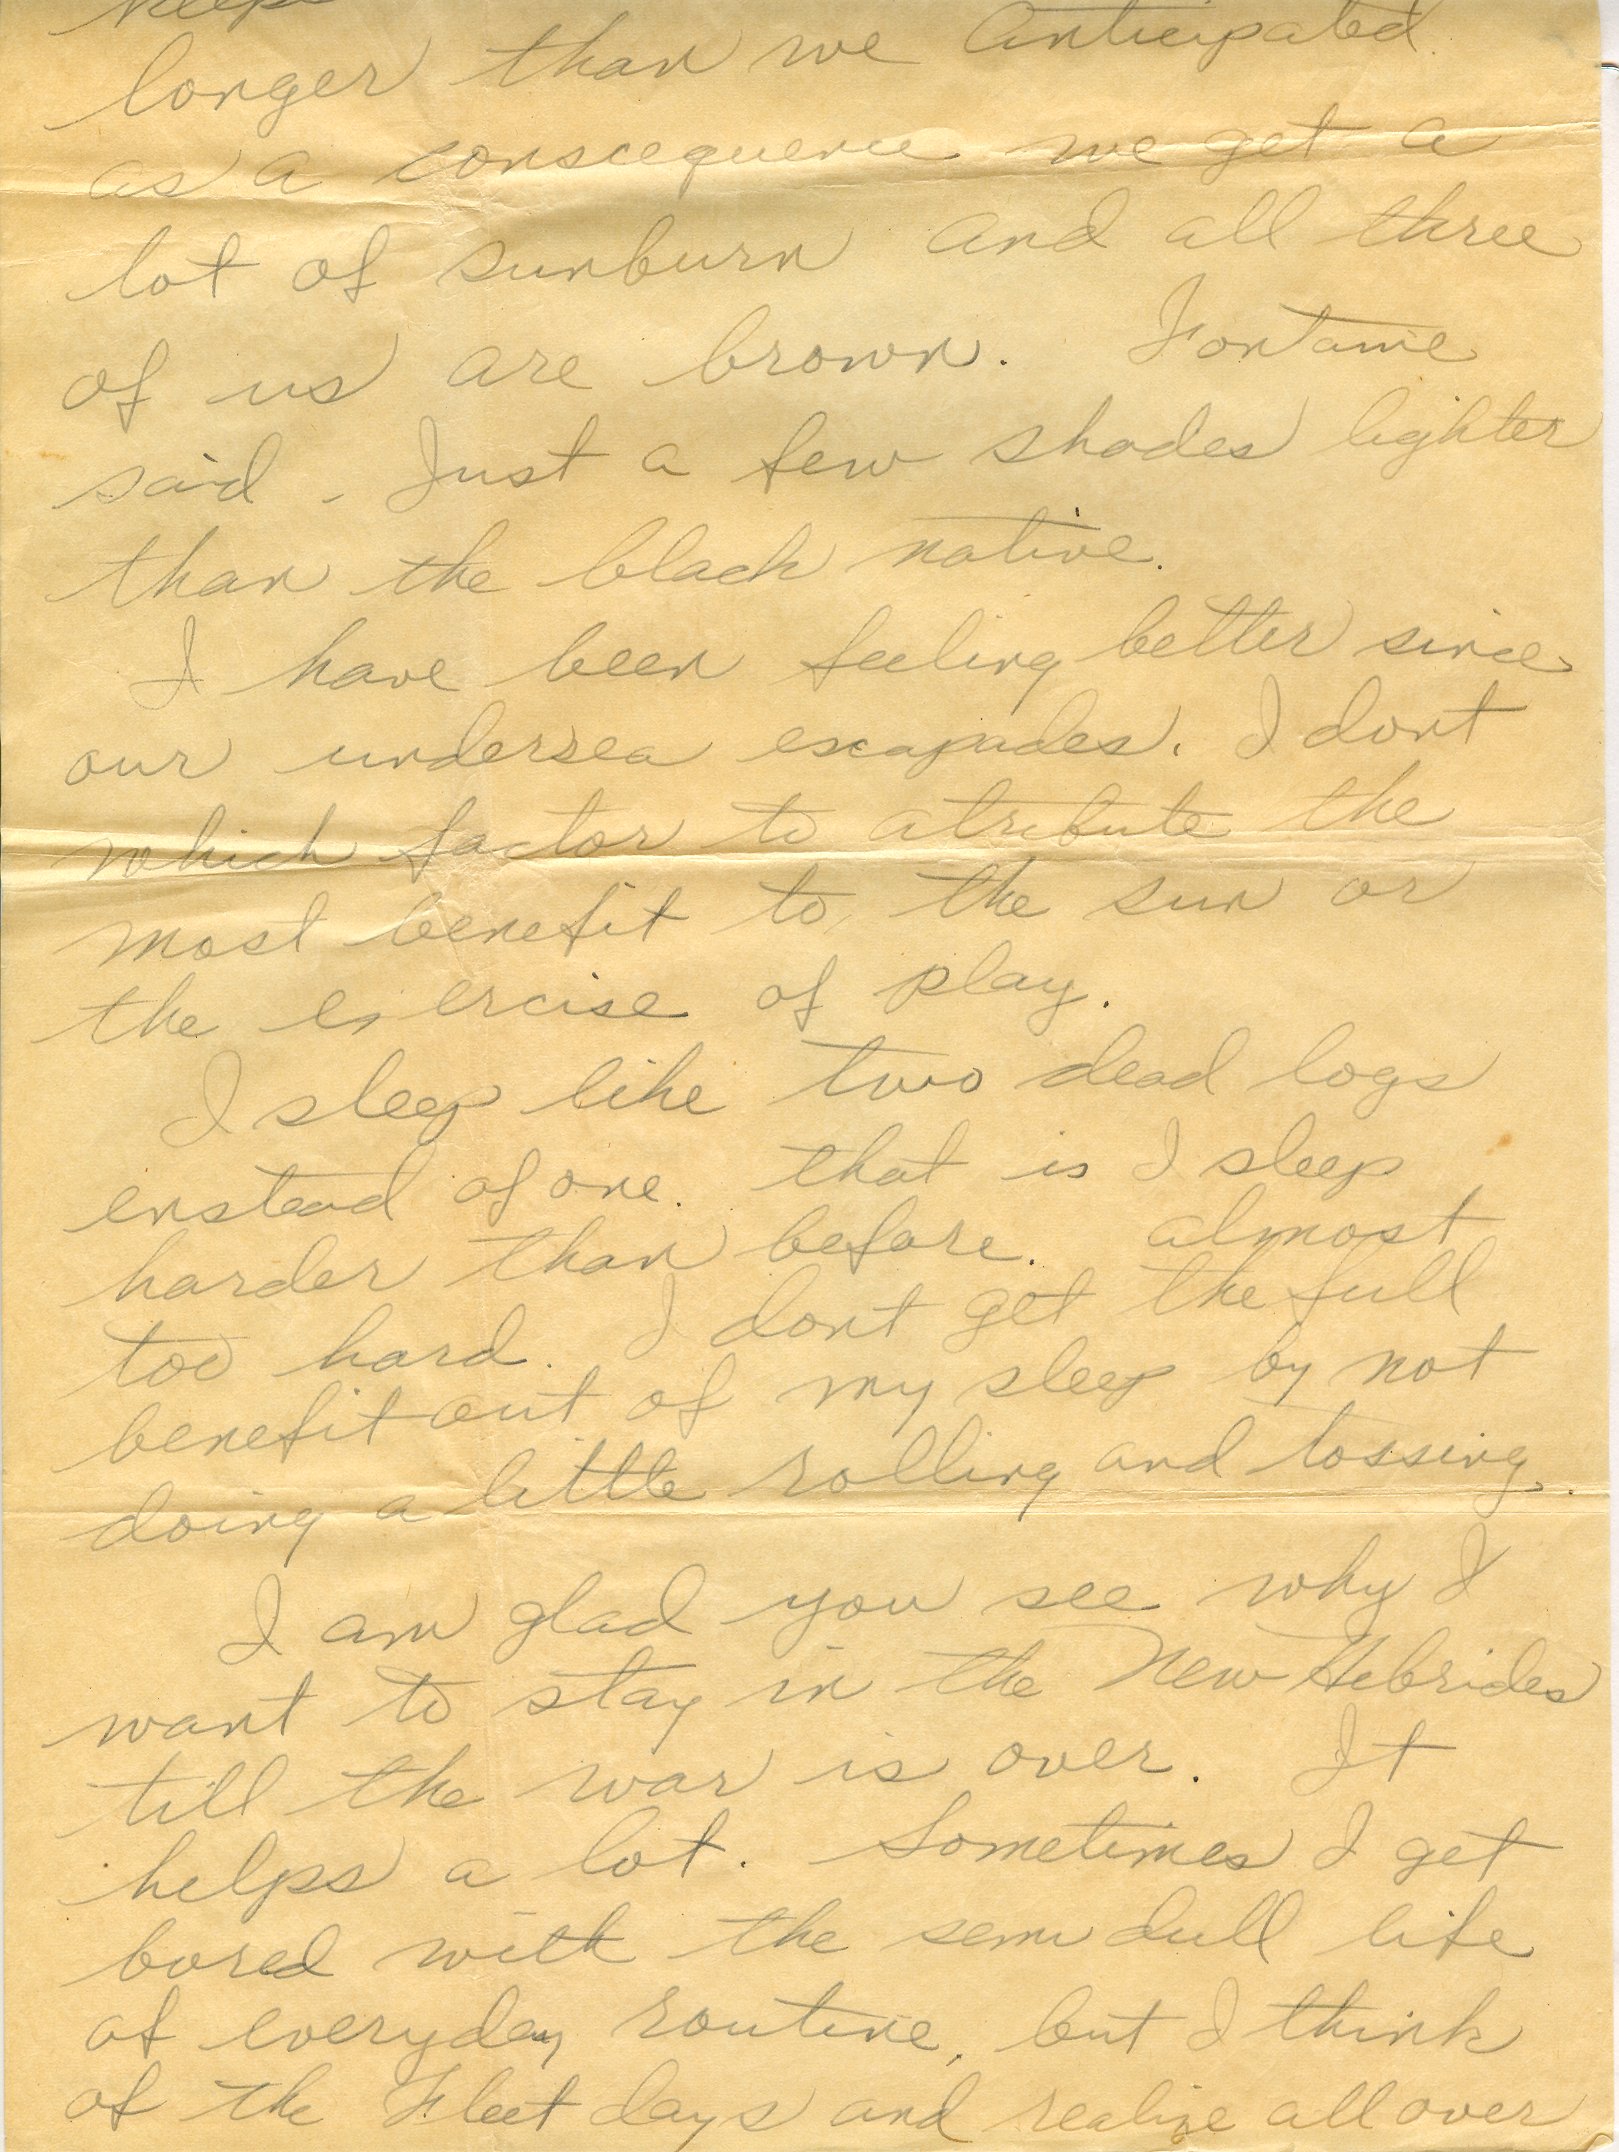 longer than we anticipated.
as a conscequence we get a
lot of sunburn and all three
of us are brown. Fontaine
said - Just a few shades lighter
than the black native.
I have been feeling better since
our undersea escapades. I dont
which factor to atribute the
most benefit to, the sun or
the exercise of play.
I sleep like two dead logs
enstead of one. that is I sleep
harder than before. almost
too hard. I dont get the full
benefit out of my sleep by not
doing a little rolling and tossing.
I am glad you see why I
want to stay in the New Hebrides
till the war is over. It
helps a lot. Sometimes I get
bored with the semi dull life
of everyday routine, but I think
of the Fleet days and realize all over